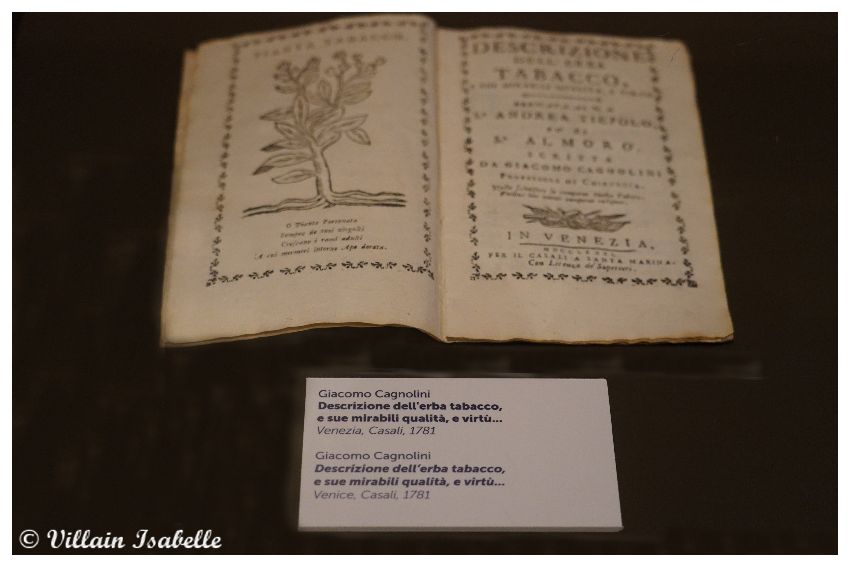 PIANTA TABACCO.
O Pianta Fortunata
Sempre de rami adulti
A cui mormori intorno Ape dorata.
DESCRIZIONE
DELL' ERBA
TABACCO,
Sr ANDREA TIEPOLO,
Sr ALMORÒ,
SCRITTA
DA GIACOMO CAGNOLINI
PROFESSORE DI CHIRURGIA.
IN VENEZIA,
PER IL CASALI A SANTA MARINA.
Con Licenza de' Superiori.
Giacomo Cagnolini
Descrizione dell'erba tabacco,
e sue mirabili qualità, e virtù...
Venezia, Casali, 1781
Giacomo Cagnolini
Descrizione dell'erba tabacco,
e sue mirabili qualità, e virtù...
Venice, Casali, 1781
© Villain Isabelle